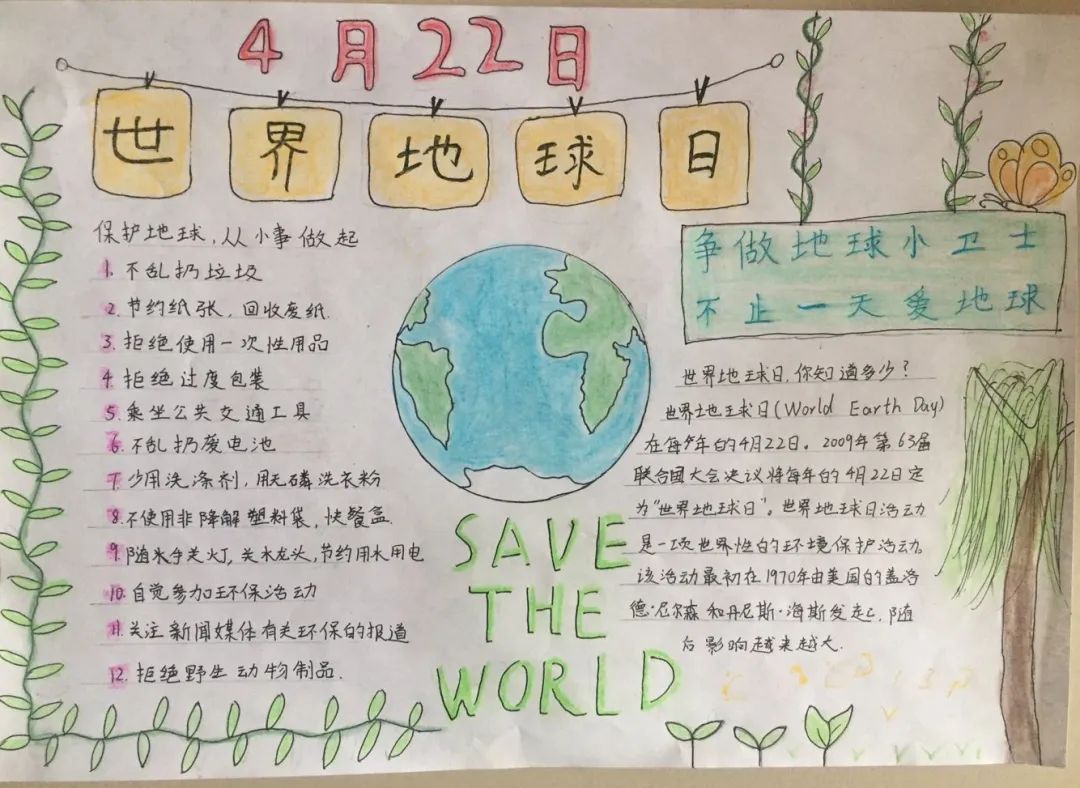 4月22日
世界地球日
保护地球,从小事做起
1. 不乱扔垃圾
2. 节约纸张,回收废纸.
3. 拒绝使用一次性用品
4. 拒绝过度包装
5. 乘坐公共交通工具
6. 不乱扔废电池
7. 少用洗涤剂,用无磷洗衣粉
8. 不使用非降解塑料袋,快餐盒.
9. 随水手关灯,关水龙头,节约用水用电
10. 自觉参加环保活动
11. 关注新闻媒体有关环保的报道
12. 拒绝野生动物制品.
SAVE
THE
WORLD
争做地球小卫士
不止一天爱地球
世界地球日,你知道多少?
世界地球日(World Earth Day)
在每年的4月22日。2009年第63届
联合国大会决议将每年的4月22日定
为“世界地球日”。世界地球日活动
是一项世界性的环境保护活动。
该活动最初在1970年由美国的盖洛
德·尼尔森和丹尼斯·海斯发起,随
后影响越来越大.